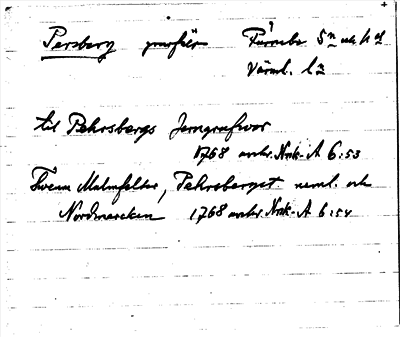 Persberg gruvfält Färnebo Sn och hd
Värml. län
til Pehrsbergs Jerngrufvor
1768 avskr. Nrk. A 6:53
Trenne Malmfelter, Pehrsberget neml. och
Nordmarcken 1768 avskr. Nrk. A 6:54